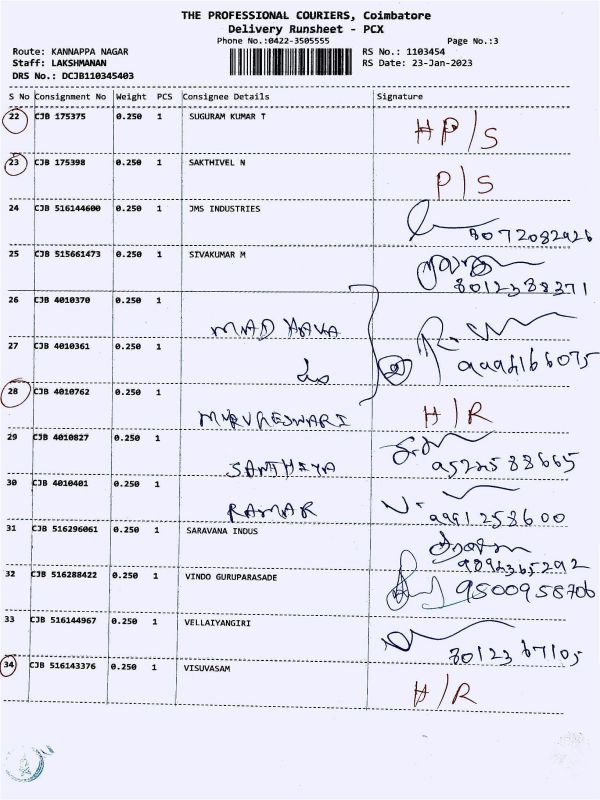 THE PROFESSIONAL COURIERS, Coimbatore
Delivery Runsheet - PCX
Phone No.:0422-3505555 Page No.:3
Route: KANNAPPA NAGAR RS No.: 1103454
Staff: LAKSHMANAN RS Date: 23-Jan-2023
DRS No.: DCJB110345403
S No Consignment No Weight PCS Consignee Details Signature
22 CJB 175375 0.250 1 SUGURAM KUMAR T H P/S
23 CJB 175398 0.250 1 SAKTHIVEL N P/S
24 CJB 516144600 0.250 1 JMS INDUSTRIES
8072082926
25 CJB 515661473 0.250 1 SIVAKUMAR M
8012388371
26 CJB 4010370 0.250 1 MADHAVA
27 CJB 4010361 0.250 1 do
28 CJB 4010762 0.250 1 MURUGESWARI H/R
29 CJB 4010827 0.250 1 SANTHIYA
9524588665
30 CJB 4010401 0.250 1 RAMAR
31 CJB 516296061 0.250 1 SARAVANA INDUS
32 CJB 516288422 0.250 1 VINDO GURUPARASADE
9500958706
33 CJB 516144967 0.250 1 VELLAIYANGIRI
8012367105
34 CJB 516143376 0.250 1 VISUVASAM H/R